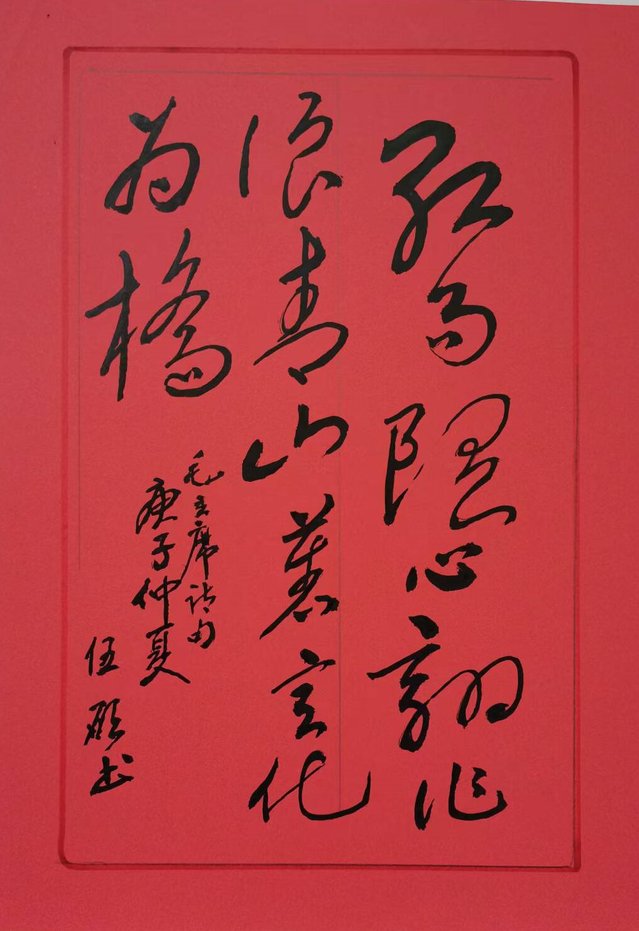 红雨随心翻作
浪青山着意化
为橋
毛主席诗句
庚子仲夏
伍 书